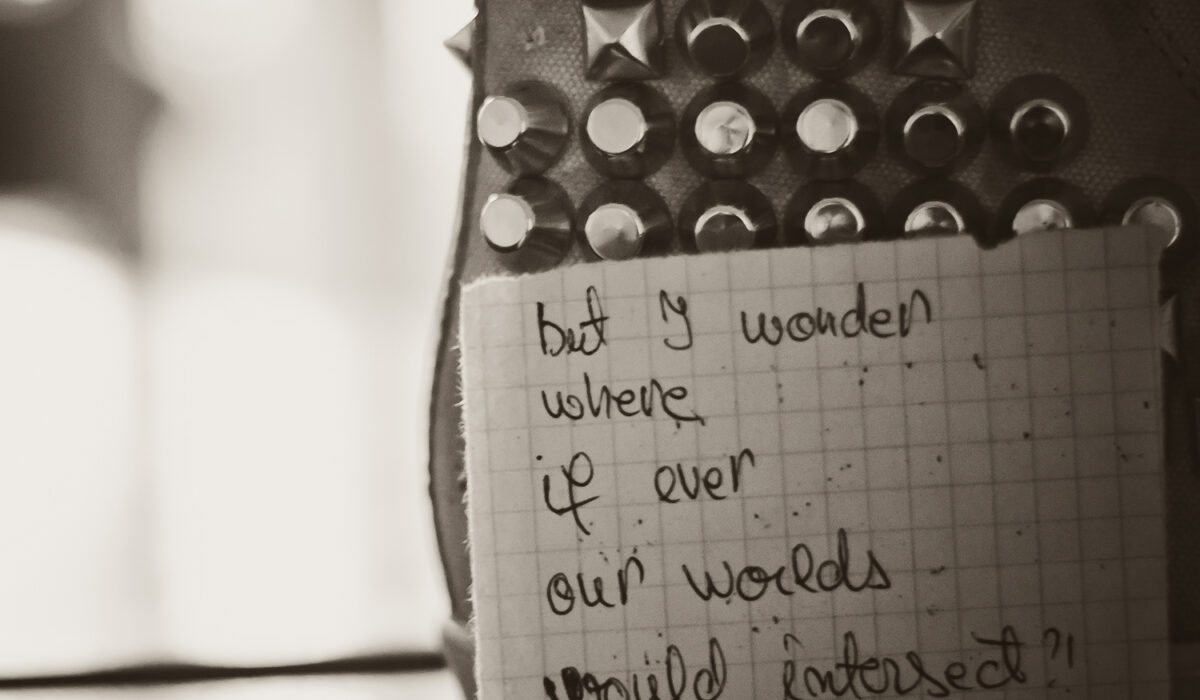 but I wonder
where
if ever
our worlds
would intersect?!